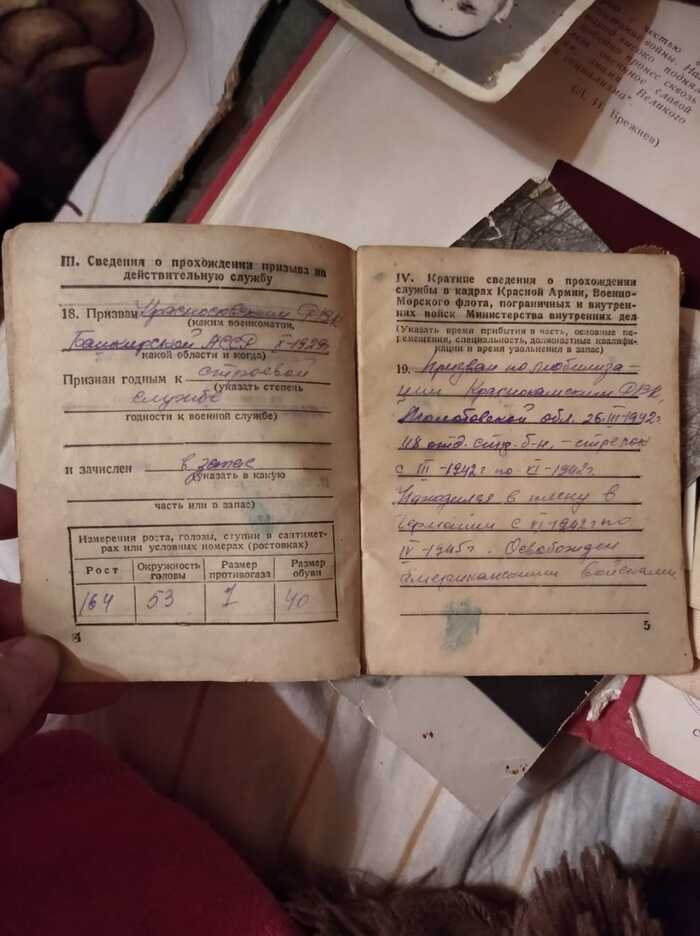 честью
войны. На
высоко подня
пронес сквозь
овеянное славой
знамя Великого
социализма".
(Л. И. Брежнев)
III. Сведения о прохождении призыва на
действительную службу
18. Призван Краснокамским РВК
(каким военкоматом,
Башкирской АССР X-1929г
какой области и когда)
Признан годным к строевой
(указать степень
службе
годности к военной службе)
и зачислен в запас
(указать в какую
часть или в запас)
Измерения роста, головы, ступни в сантимет-
рах или условных номерах (ростовках)
Рост Окружность головы Размер противогаза Размер обуви
164 53 1 40
4
IV. Краткие сведения о прохождении
службы в кадрах Красной Армии, Военно-
Морского флота, пограничных и внутрен-
них войск Министерства внутренних дел
(Указать время прибытия в часть, основные пе-
ремещения, специальность, должностные квалифи-
кации и время увольнения в запас)
19. Призван по мобилиза-
ции Краснокамским РВК,
Молотовской обл. 26.III-1942г.
118 отд. стр. б-н, - стрелок
с III-1942г по XI-1942г.
Находился в плену в
Германии с XI-1942г по
IV-1945г. Освобожден
американскими войсками
5